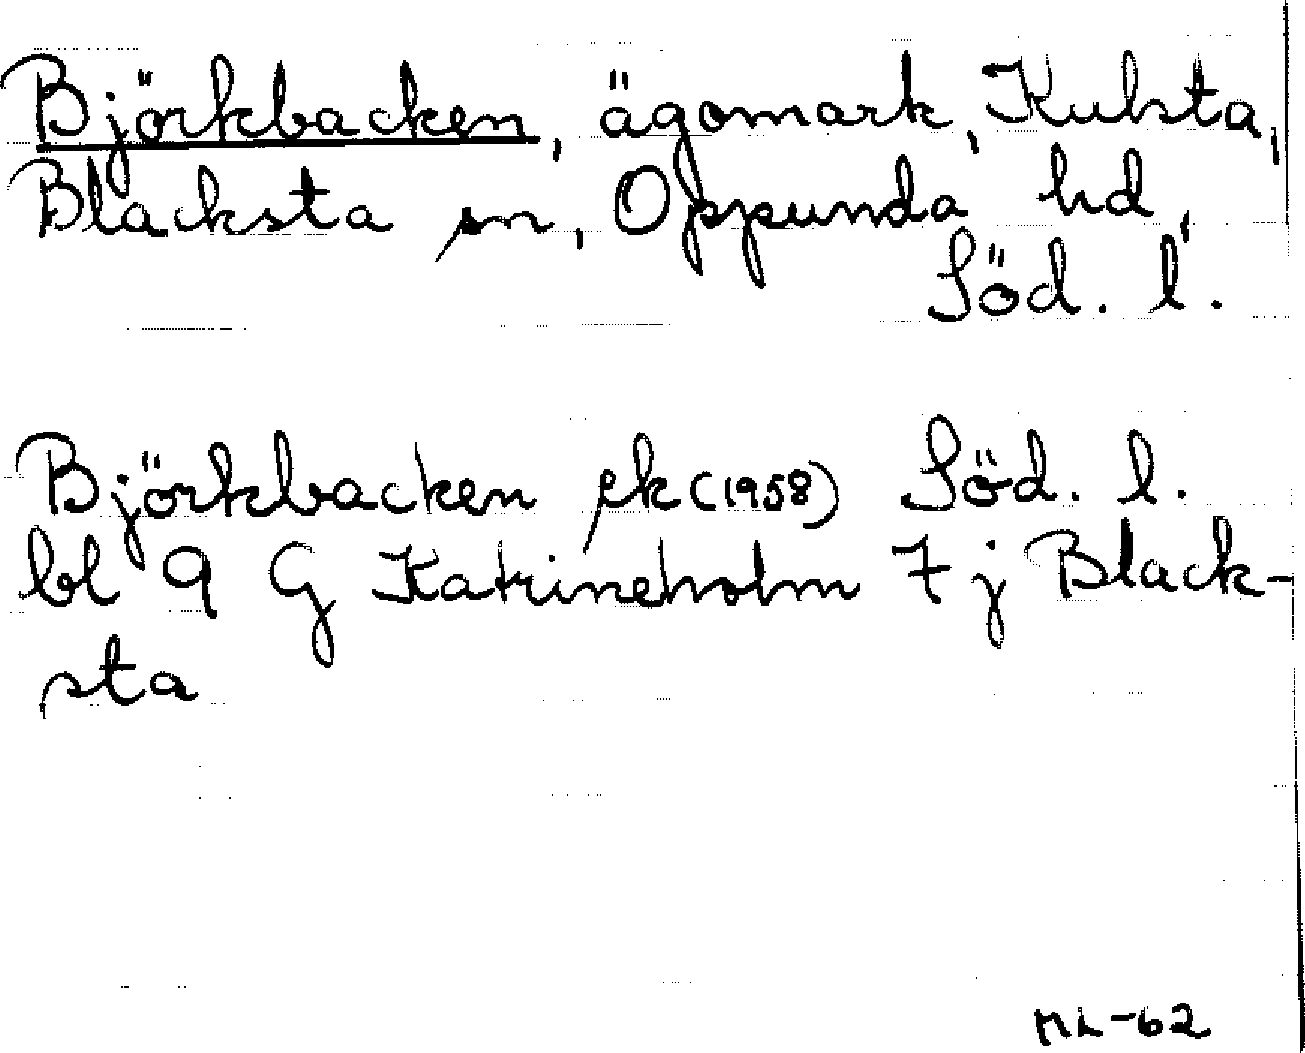 Björkbacken, ägomark, Kulsta,
Blacksta sn, Oppunda hd,
Söd. l.
Björkbacken ek (1958) Söd. l.
bl 9 G Katrineholm 7 j Black-
sta
ML-62